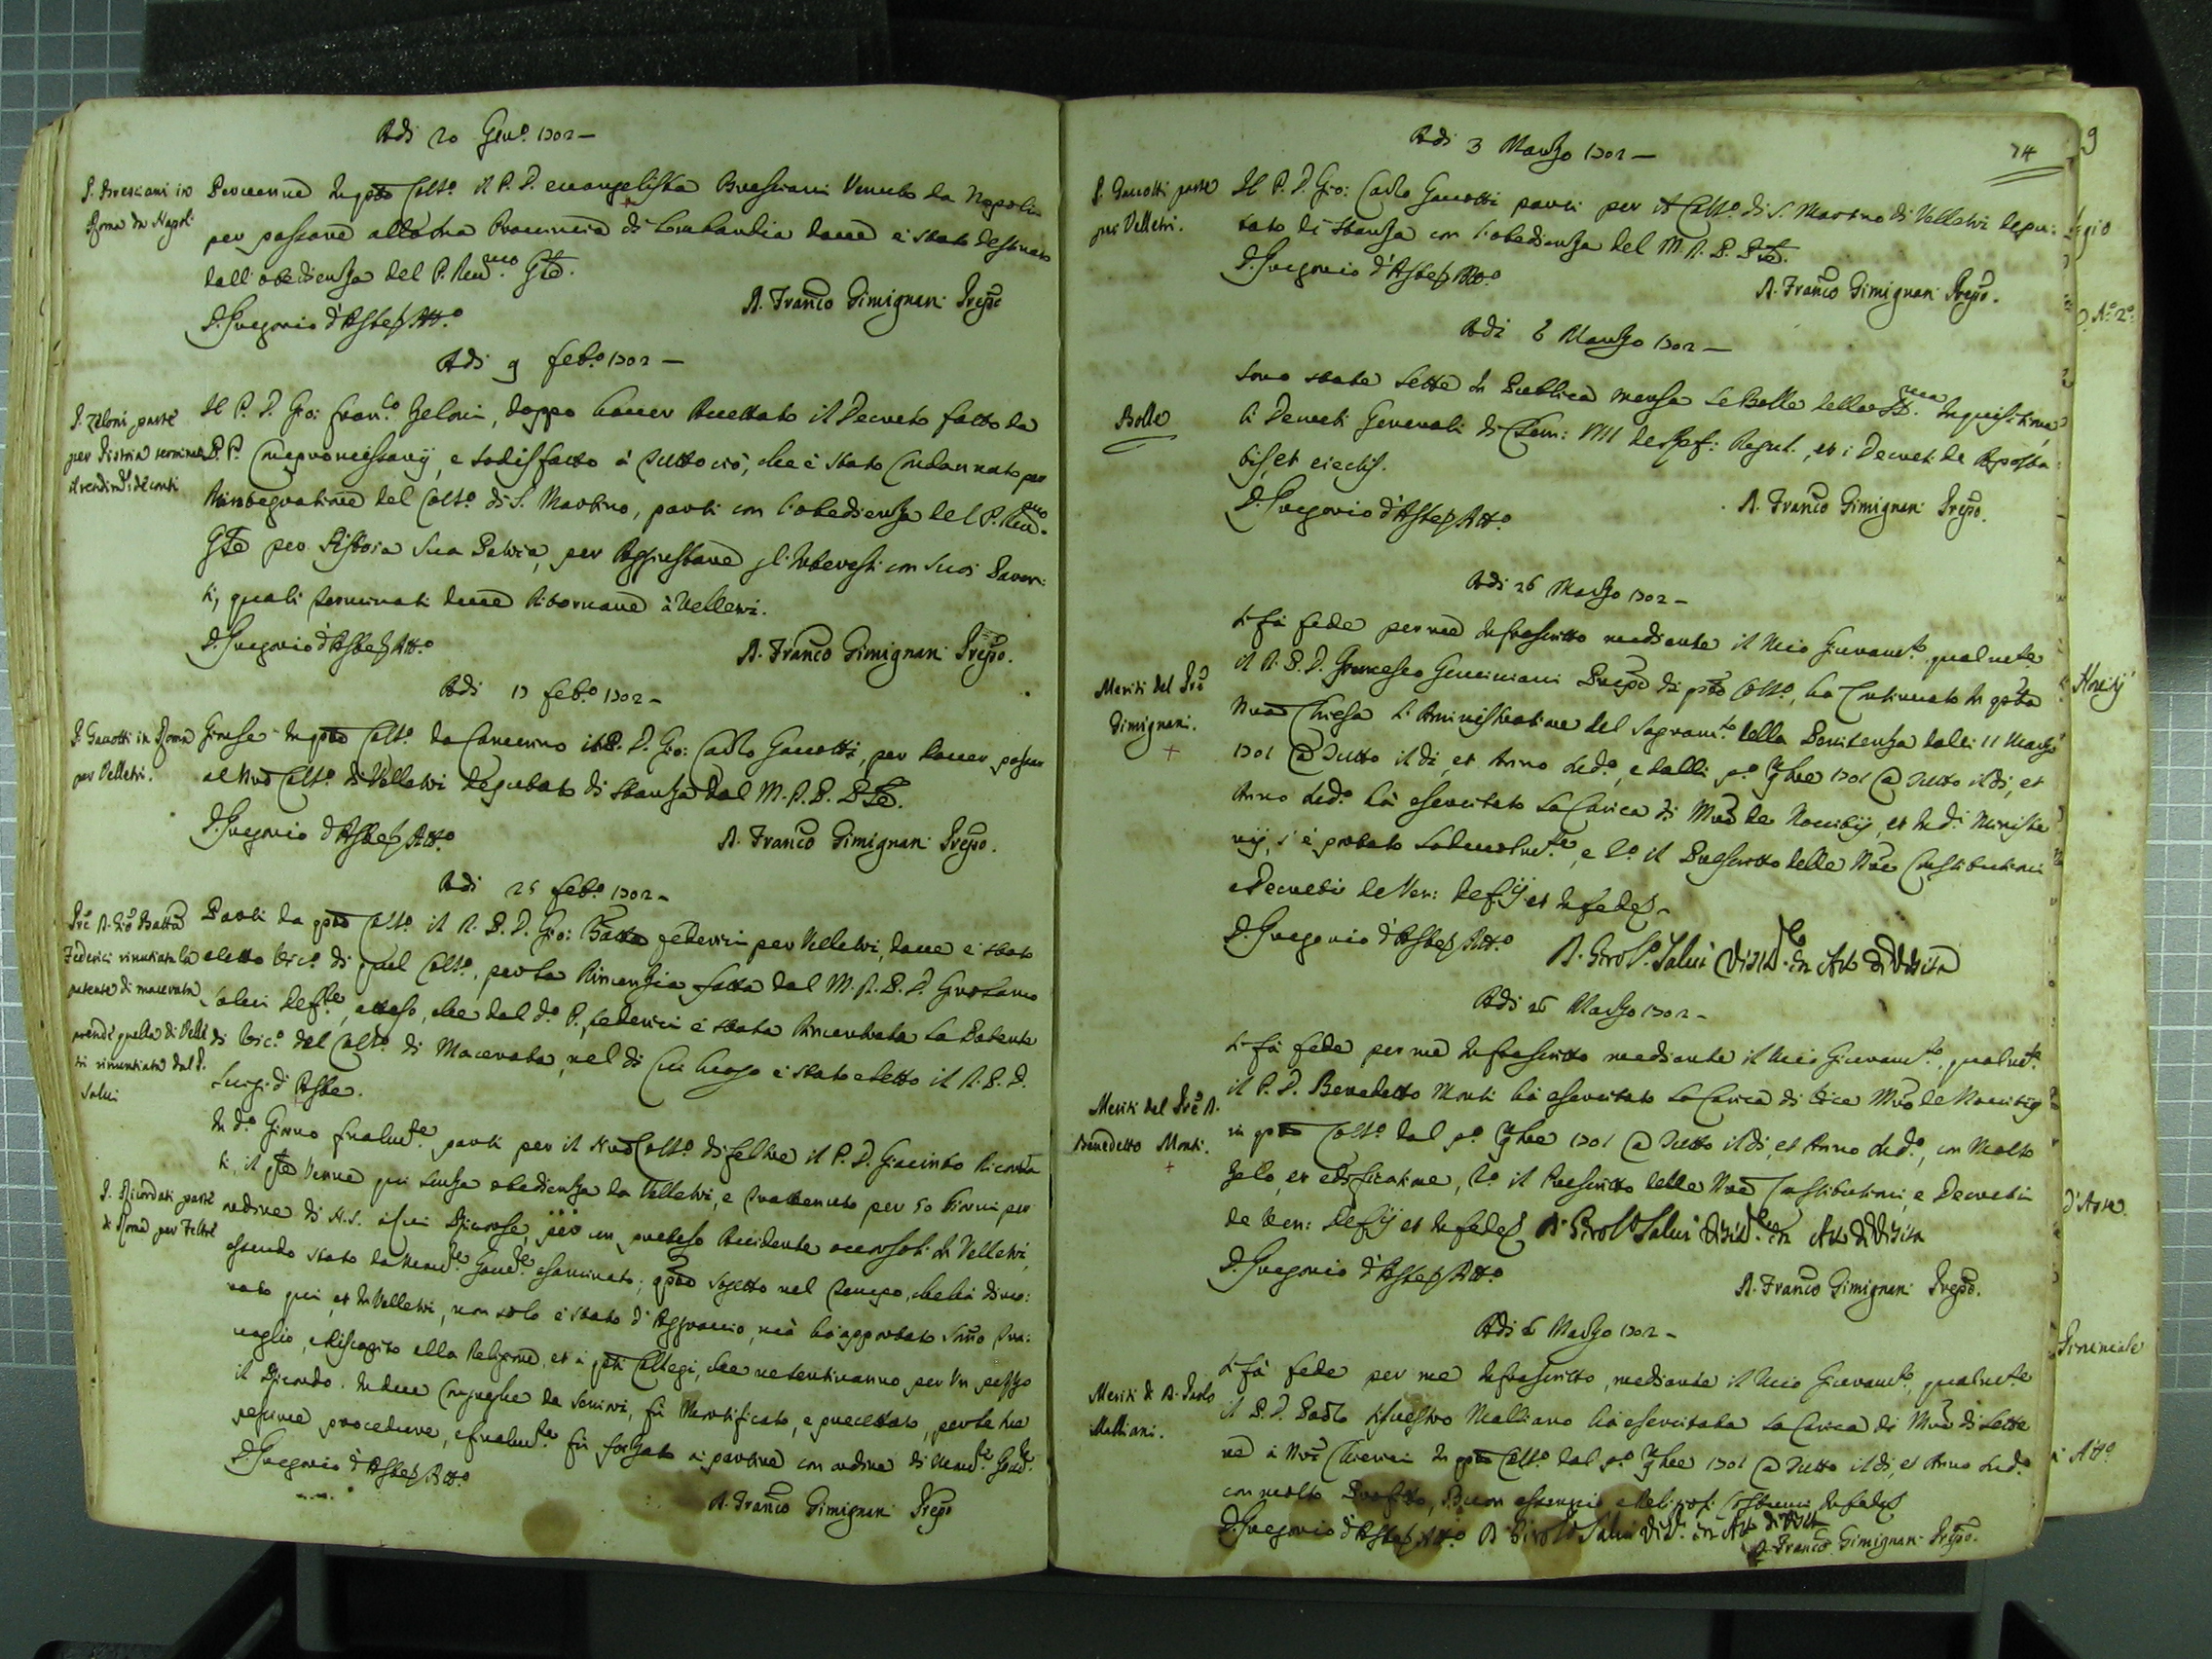 Adi 20 Gen.o 1702 —
P. Bresciani in
Roma da Napoli
Peruenne in qsto Coll.o il P. D. euangelista Bresciani Venuto da Napoli
per passare alla sua Prouincia di Lombardia doue è stato destinato
dall'obedienza del P. Reu.mo Gle.
D. Gregorio d'Aste Att.o
D. Franco Gimignani Prepo
Adi 9 feb.o 1702 —
P. Zeloni parte
per Pistoia terminato
il rendim.to de conti
Il P. D. Gio: Fran.co Zeloni, doppo hauer Accettato il Decreto fatto da
P.P. Compromissarij, e sodisfatto à tutto ciò, che è stato Condannato per
Reintegratione del Coll.o di S. Martino, partì con l'obedienza del P. Reu.mo
Gle per Pistoia sua Patria, per Aggiustare gl'Interessi con suoi Paren:
ti, quali terminati deue Ritornare à Velletri.
D. Gregorio d'Aste Att.o
D. Franco Gimignani Prepo.
Adi 17 feb.o 1702 —
P. Gauotti in Roma
per Velletri.
Giunse in qsto Coll.o da Camerino il P. D. Gio: Carlo Gauotti, per douer passar
al Nro Coll.o di Velletri deputato di stanza dal M. R. P. Ple.
D. Gregorio d'Aste Att.o
D. Franco Gimignani Prepo.
Adi 25 feb.o 1702 —
Pre D. Gio Batta
Federici rinuntiata la
patente di macerata
prende quella di Velle
tri rinuntiata dal P.
Salui
Partì da qsto Coll.o il R. P. D. Gio: Batta Federici per Velletri, doue è stato
eletto Vic.o di quel Coll.o, per la Rinunzia fatta dal M. R. P. D. Girolamo
Salui, atteso, che dal d.o P. Federici è stata Rinuntiata la Patente
di Vic.o del Coll.o di Macerata, nel di Cui luogo è stato eletto il R. P. D.
Luigi d'Aste.
P. Ricordati parte
di Roma per Feltre
In d.o Giorno finalm.te partì per il Nro Coll.o di Feltre il P. D. Giacinto Ricorda
ti, il qle Venne qui senza obedienza da Velletri, e trattenuto per 50 Giorni per
ordine di N. S. à cui Ricorse, per un preteso Accidente occorsoli in Velletri,
essendo stato da Mons.re esaminato; qsto sogetto nel tempo, che hà dimo:
rato qui, et in Velletri, non solo è stato d'Aggrauio, mà hà apportato Tra:
uaglio, e discapito alla Religione, et à qsti Collegi, che ne sentiranno per Un pezzo
il Ricordo. Fù Mortificato, e precettato, per le sue
pessime procedure, e finalm.te fù forzato à partire con ordine di Mons.re
D. Gregorio d'Aste Att.o
D. Franco Gimignani Prepo
74
Adi 3 Marzo 1702 —
P. Gauotti parte
per Velletri.
Il P. D. Gio: Carlo Gauotti partì per il Coll.o di S. Martino di Velletri depu:
tato di stanza con l'obedienza del M. R. P. Ple.
D. Gregorio d'Aste Att.o
D. Franco Gimignani Prepo.
Adi 6 Marzo 1702 —
Bolle
Sono state lette in Publica mensa le Bolle della S.ma Inquisitione,
li Decreti Generali di Clem: VIII de Ref: Regul., et i Decreti de Aposta:
tis, et eiectis.
D. Gregorio d'Aste Att.o
D. Franco Gimignani Prepo.
Adi 26 Marzo 1702 —
Meriti del Pre
Gimignani.
+
Si fà fede per me Infrascritto mediante il Mio Giuram.to, qualm.te
il R. P. D. Francesco Geminiani Prepo di qsto Coll.o, ha Continuato in qsta
Nra Chiesa l'Aministratione del Sagram.to della Penitenza dalli 11 Marzo
1701 @ tutto il dì, et Anno sud.o, e dalli p.o 7bre 1701 @ tutto il dì, et
Anno sud.o hà esercitato la Carica di Mro de Nouitij, et in d.i Ministe
rij, s'è portato lodeuolm.te, e s.o il Prescritto delle Nre Constitutioni
e Decreti de Ven: Def.ij et in fede
D. Gregorio d'Aste Att.o
D. Girol.o Salui Visit.re in Atto di Visita
Adi 26 Marzo 1702 —
Meriti del Pre D.
Benedetto Monti.
+
Si fà fede per me Infrascritto mediante il Mio Giuram.to, qualm.te
il P. D. Benedetto Monti hà esercitato la Carica di Vice Mro de Nouitij
in qsto Coll.o dal p.o 7bre 1701 @ tutto il dì, et Anno sud.o, con Molto
Zelo, et edificatione, s.o il Prescritto delle Nre Constitutioni, e Decreti
de Ven: Def.ij et in fede D. Girol.o Salui Visit.re in Atto di Visita
D. Gregorio d'Aste Att.o
D. Franco Gimignani Prepo.
Adi 26 Marzo 1702 —
Meriti di D. Paolo
Malliani.
Si fà fede per me Infrascritto, mediante il Mio Giuram.to, qualm.te
il P. D. Paolo Siluestro Malliano hà esercitata la Carica di Mro di Lette
re à Nri Chierici in qsto Coll.o dal p.o 7bre 1701 @ tutto il dì, et Anno sud.o
con molto Profitto, Buon essempio, e Religiosi Costumi In fede
D. Gregorio d'Aste Att.o D. Girol.o Salui Visit.re in Atto di Visita
D. Franco Gimignani Prepo.
9
d'Aste.
Att.o